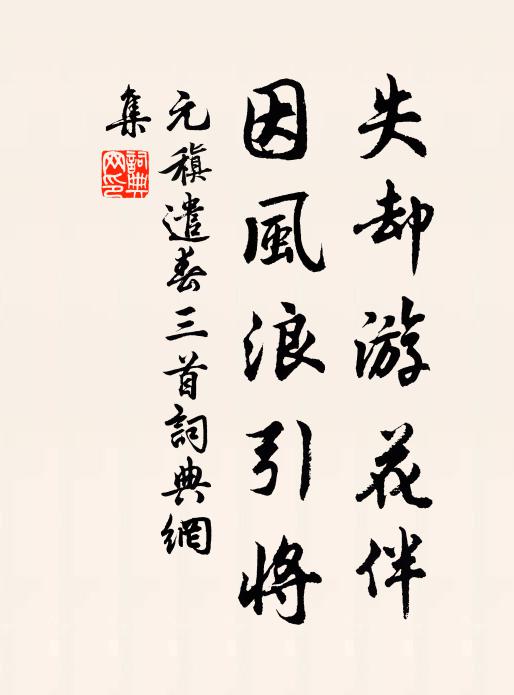 失却游花伴
因風浪引將
元稹遣春三首詞典網
集
詞典
网印